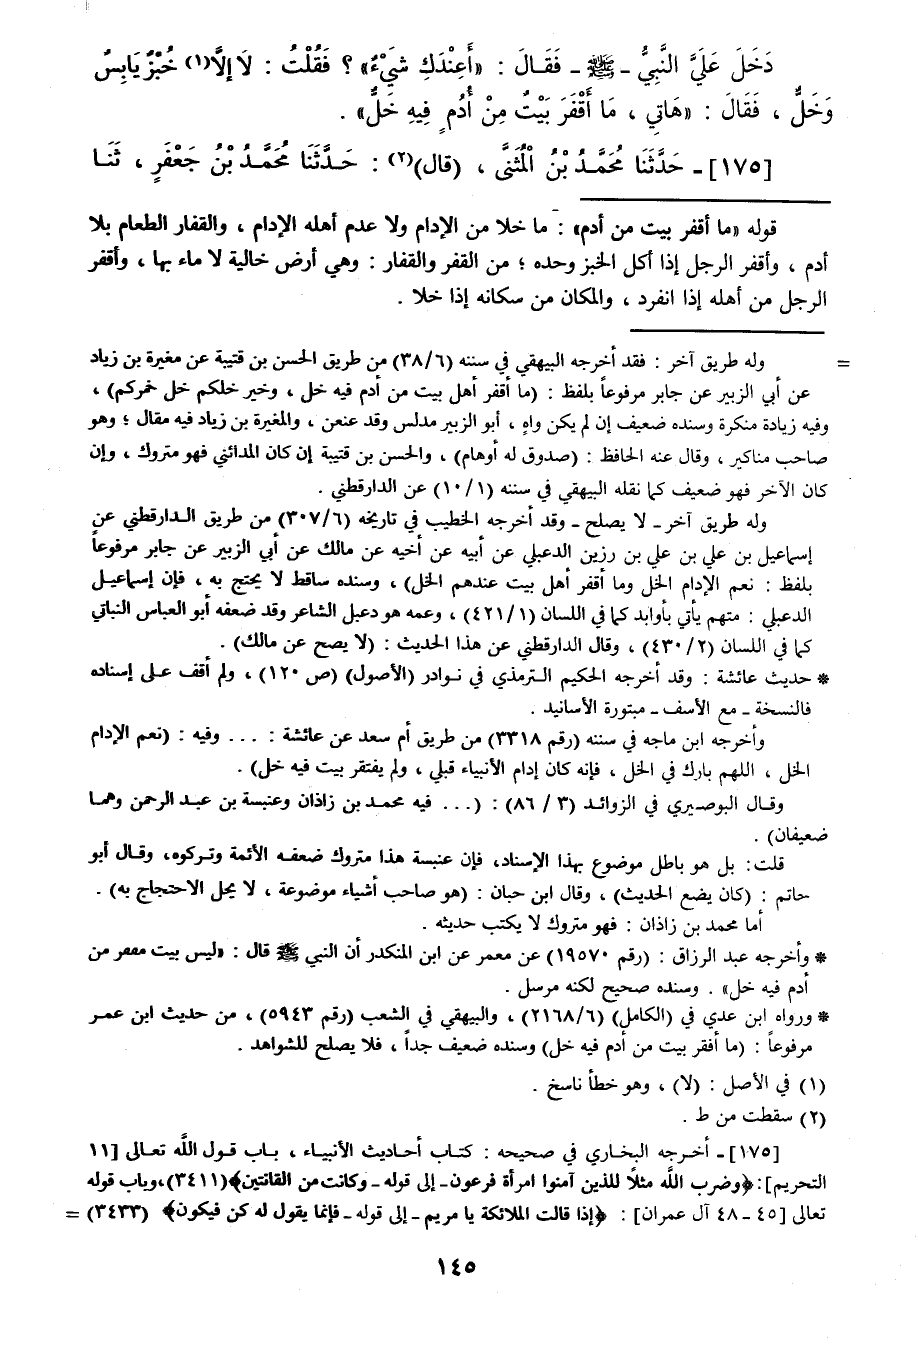 دَخَلَ عَلَيَّ النَّبِيُّ ـ ﷺ ـ فَقَالَ : «أَعِنْدَكِ شَيْءٌ» ؟ فَقُلْتُ : لَا إلَّا(١) خُبْزٌ يَابِسٌ
وَخَلٌّ ، فَقَالَ : «هَاتِي ، مَا أَقْفَرَ بَيْتٌ مِنْ أُدُمٍ فِيهِ خَلٌّ» .
[١٧٥] ـ حَدَّثَنَا مُحَمَّدُ بْنُ الْمُثَنَّى ، (قال)(٢) : حَدَّثَنَا مُحَمَّدُ بْنُ جَعْفَرٍ ، ثَنَا
قوله «ما أقفر بيت من أدم» : ما خلا من الإدام ولا عدم أهله الإدام ، والقفار الطعام بلا
أدم ، وأقفر الرجل إذا أكل الخبز وحده ؛ من القفر والقفار : وهي أرض خالية لا ماء بها ، وأقفر
الرجل من أهله إذا انفرد ، والمكان من سكانه إذا خلا .
= وله طريق آخر : فقد أخرجه البيهقي في سننه (٣٨/٦) من طريق الحسن بن قتيبة عن مغيرة بن زياد
عن أبي الزبير عن جابر مرفوعاً بلفظ : (ما أقفر أهل بيت من أدم فيه خل ، وخير خلكم خل خمركم) ،
وفيه زيادة منكرة وسنده ضعيف إن لم يكن واهٍ ، أبو الزبير مدلس وقد عنعن ، والمغيرة بن زياد فيه مقال ؛ وهو
صاحب مناكير ، وقال عنه الحافظ : (صدوق له أوهام) ، والحسن بن قتيبة إن كان المدائني فهو متروك ، وإن
كان الآخر فهو ضعيف كما نقله البيهقي في سننه (١٠/١) عن الدارقطني .
وله طريق آخر ـ لا يصلح ـ وقد أخرجه الخطيب في تاريخه (٣٠٧/٦) من طريق الدارقطني عن
إسماعيل بن علي بن علي بن رزين الدعبلي عن أبيه عن أخيه عن مالك عن أبي الزبير عن جابر مرفوعاً
بلفظ : نعم الإدام الخل وما أقفر أهل بيت عندهم الخل) ، وسنده ساقط لا يحتج به ، فإن إسماعيل
الدعبلي : متهم يأتي بأوابد كما في اللسان (٤٢١/١) ، وعمه هو دعبل الشاعر وقد ضعفه أبو العباس النباتي
كما في اللسان (٤٣٠/٢) ، وقال الدارقطني عن هذا الحديث : (لا يصح عن مالك) .
* حديث عائشة : وقد أخرجه الحكيم الترمذي في نوادر (الأصول) (ص ١٢٠) ، ولم أقف على إسناده
فالنسخة ـ مع الأسف ـ مبتورة الأسانيد .
وأخرجه ابن ماجه في سننه (رقم ٣٣١٨) من طريق أم سعد عن عائشة : ... وفيه : (نعم الإدام
الخل ، اللهم بارك في الخل ، فإنه كان إدام الأنبياء قبلي ، ولم يفتقر بيت فيه خل) .
وقال البوصيري في الزوائد (٣ / ٨٦) : (... فيه محمد بن زاذان وعنبسة بن عبد الرحمن وهما
ضعيفان) .
قلت : بل هو باطل موضوع بهذا الإسناد، فإن عنبسة هذا متروك ضعفه الأئمة وتركوه، وقال أبو
حاتم : (كان يضع الحديث) ، وقال ابن حبان : (هو صاحب أشياء موضوعة ، لا يحل الاحتجاج به) .
أما محمد بن زاذان : فهو متروك لا يكتب حديثه .
* وأخرجه عبد الرزاق : (رقم ١٩٥٧٠) عن معمر عن ابن المنكدر أن النبي ﷺ قال : «ليس بيت مقفر من
أدم فيه خل» . وسنده صحيح لكنه مرسل .
* ورواه ابن عدي في (الكامل) (٢١٦٨/٦) ، والبيهقي في الشعب (رقم ٥٩٤٣) ، من حديث ابن عمر
مرفوعاً : (ما أفقر بيت من أدم فيه خل) وسنده ضعيف جداً ، فلا يصلح للشواهد .
(١) في الأصل : (لا) ، وهو خطأ ناسخ .
(٢) سقطت من ط .
[١٧٥] ـ أخرجه البخاري في صحيحه : كتاب أحاديث الأنبياء ، باب قول الله تعالى [١١
التحريم]: ﴿وضرب الله مثلاً للذين آمنوا امرأة فرعون ـ إلى قوله ـ وكانت من القانتين﴾(٣٤١١)، وباب قوله
تعالى [٤٥ ـ ٤٨ آل عمران] : ﴿إذا قالت الملائكة يا مريم ـ إلى قوله ـ فإنما يقول له كن فيكون﴾ (٣٤٣٣) =
١٤٥